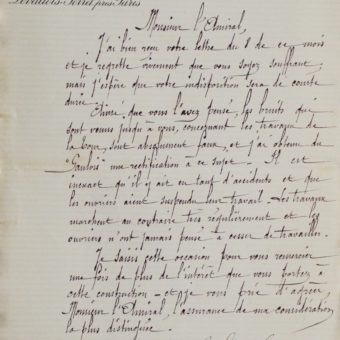 Levallois-Perret près Paris
Monsieur l'Amiral,
J'ai bien reçu votre lettre du 8 de ce mois
et je regrette vivement que vous soyez souffrant,
mais j'espère que votre indisposition sera de courte
durée.
Ainsi, que vous l'avez pensé, les bruits qui
sont venus jusqu'à vous, concernant les travaux de
la Tour, sont absolument faux, et j'ai obtenu du
"Gaulois" une rectification à ce sujet - Il est
inexact qu'il y ait eu tant d'accidents et que
les ouvriers aient suspendu leur travail. Les travaux
marchent au contraire très régulièrement et les
ouvriers n'ont jamais pensé à cesser de travailler.
Je saisis cette occasion pour vous remercier
une fois de plus de l'intérêt que vous portez à
cette construction - et je vous prie d'agréer,
Monsieur l'Amiral, l'assurance de ma considération
la plus distinguée.